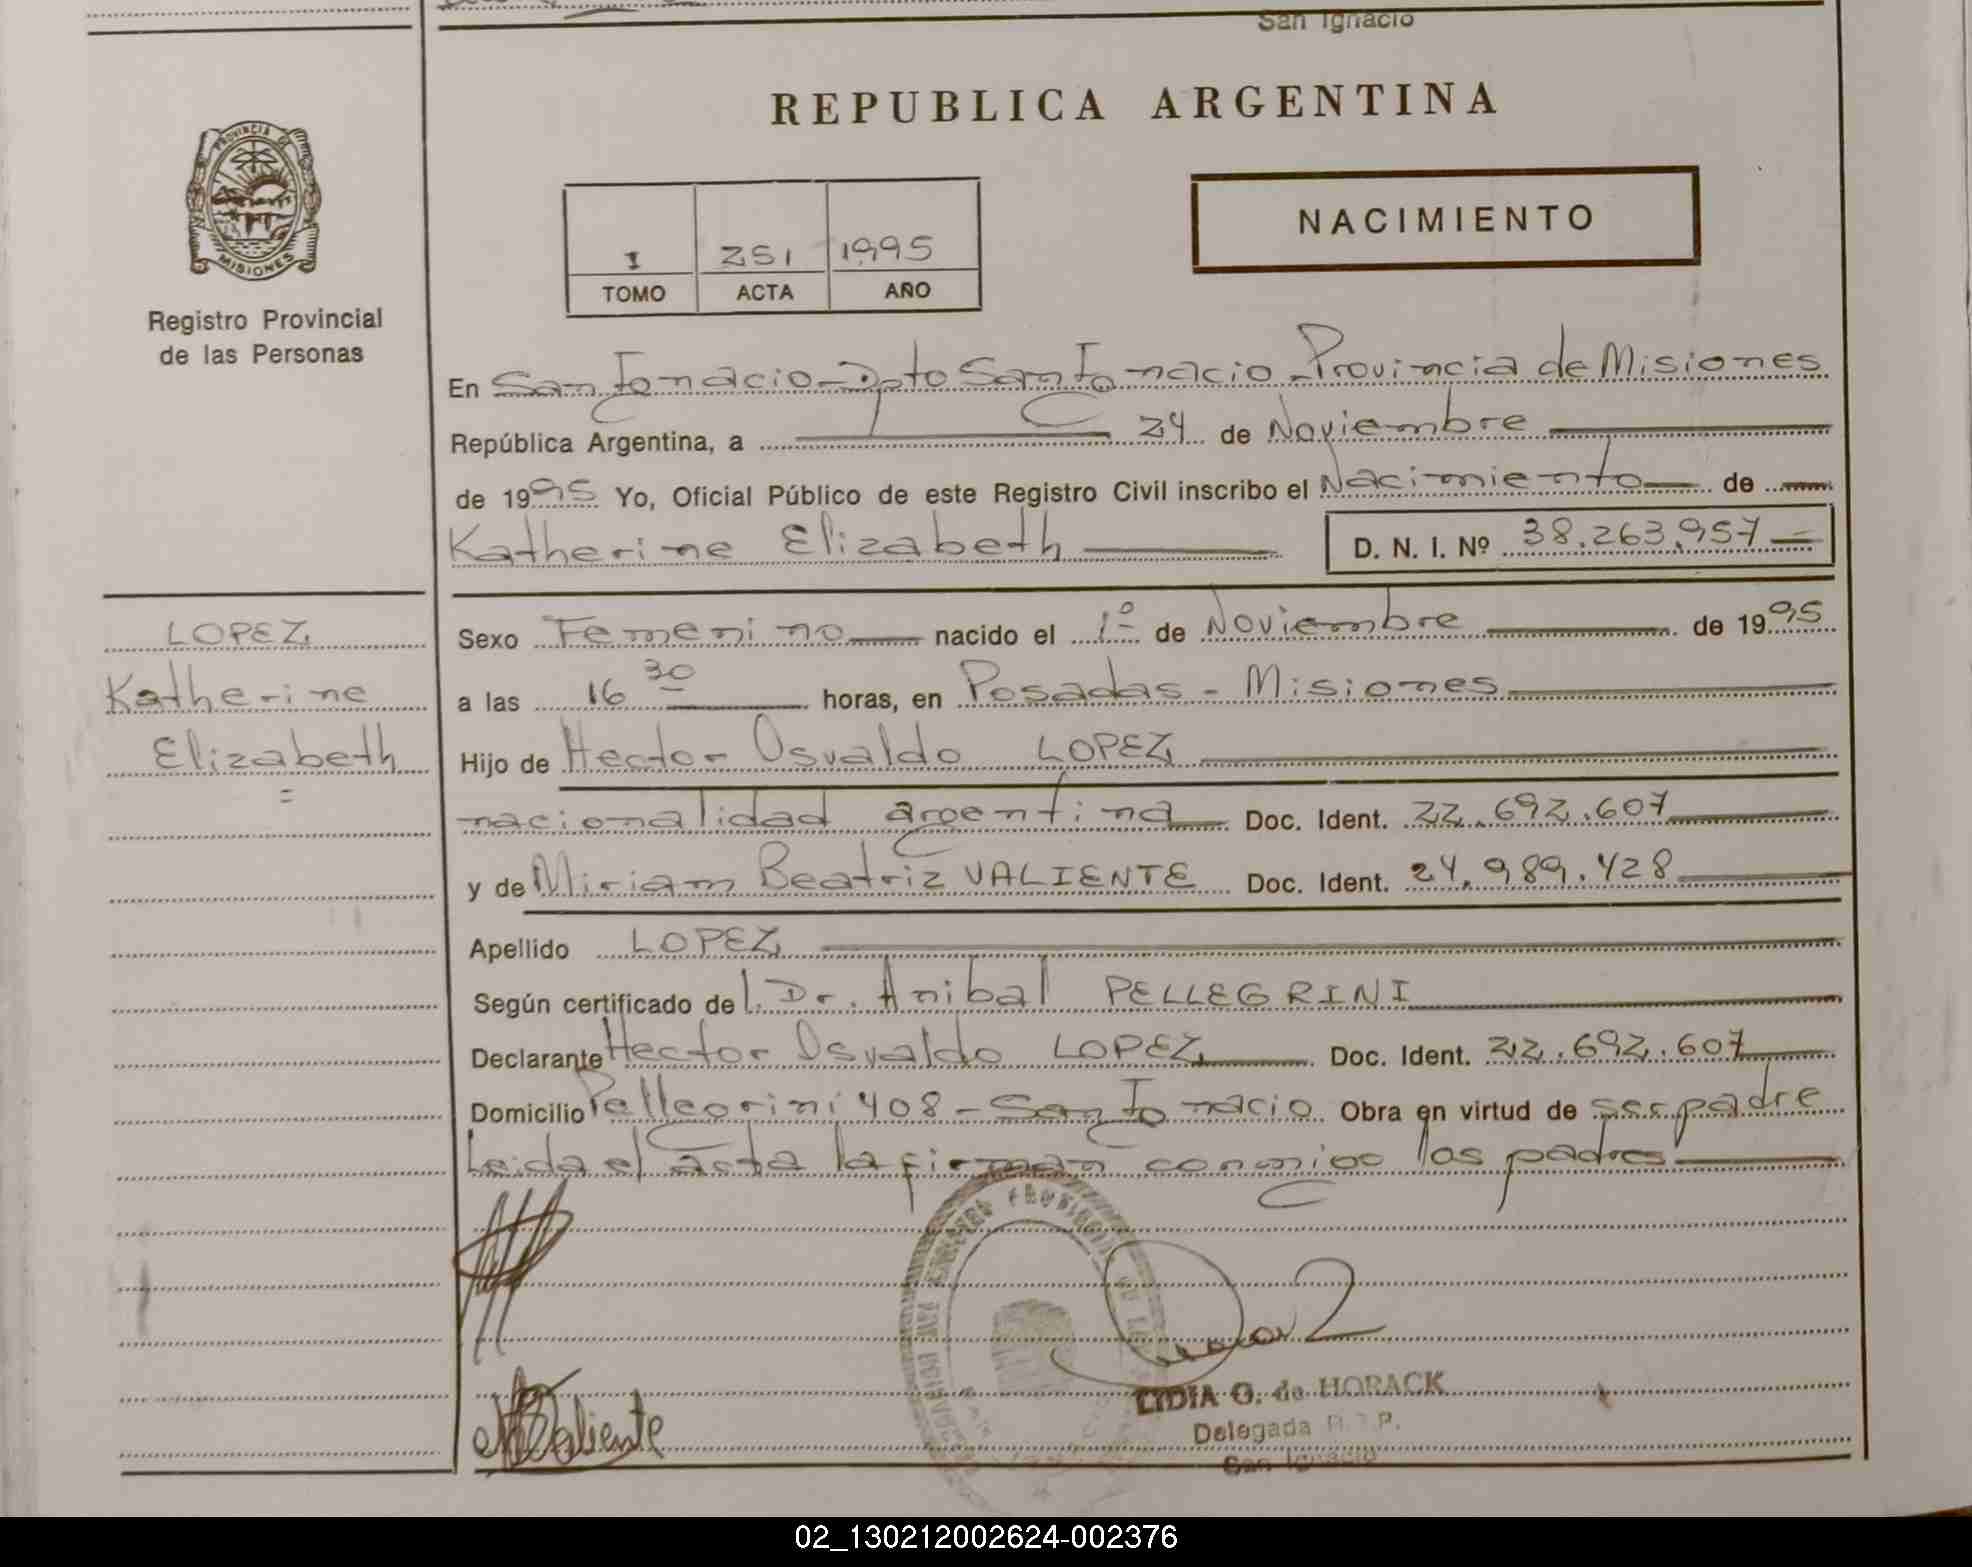 San Ignacio
REPUBLICA ARGENTINA
PROVINCIA DE
MISIONES
Registro Provincial
de las Personas
I 251 1995
TOMO ACTA AÑO
NACIMIENTO
En San Ignacio - Dpto San Ignacio Provincia de Misiones
República Argentina, a 24 de Noviembre
de 1995 Yo, Oficial Público de este Registro Civil inscribo el Nacimiento de
Katherine Elizabeth D. N. I. Nº 38.263.957
LOPEZ
Katherine
Elizabeth
Sexo Femenino nacido el 1º de Noviembre de 1995
a las 16 30 horas, en Posadas - Misiones
Hijo de Hector Osvaldo LOPEZ
nacionalidad argentina Doc. Ident. 22.692.607
y de Miriam Beatriz VALIENTE Doc. Ident. 24.989.428
Apellido LOPEZ
Según certificado del Dr. Anibal PELLEGRINI
Declarante Hector Osvaldo LOPEZ Doc. Ident. 22.692.607
Domicilio Pellegrini 408 - San Ignacio Obra en virtud de ser padre
Leida el acta la firman conmigo los padres
Valiente
LIDIA G. de HORACK
Delegada R.P.P.
San Ignacio
02_130212002624-002376